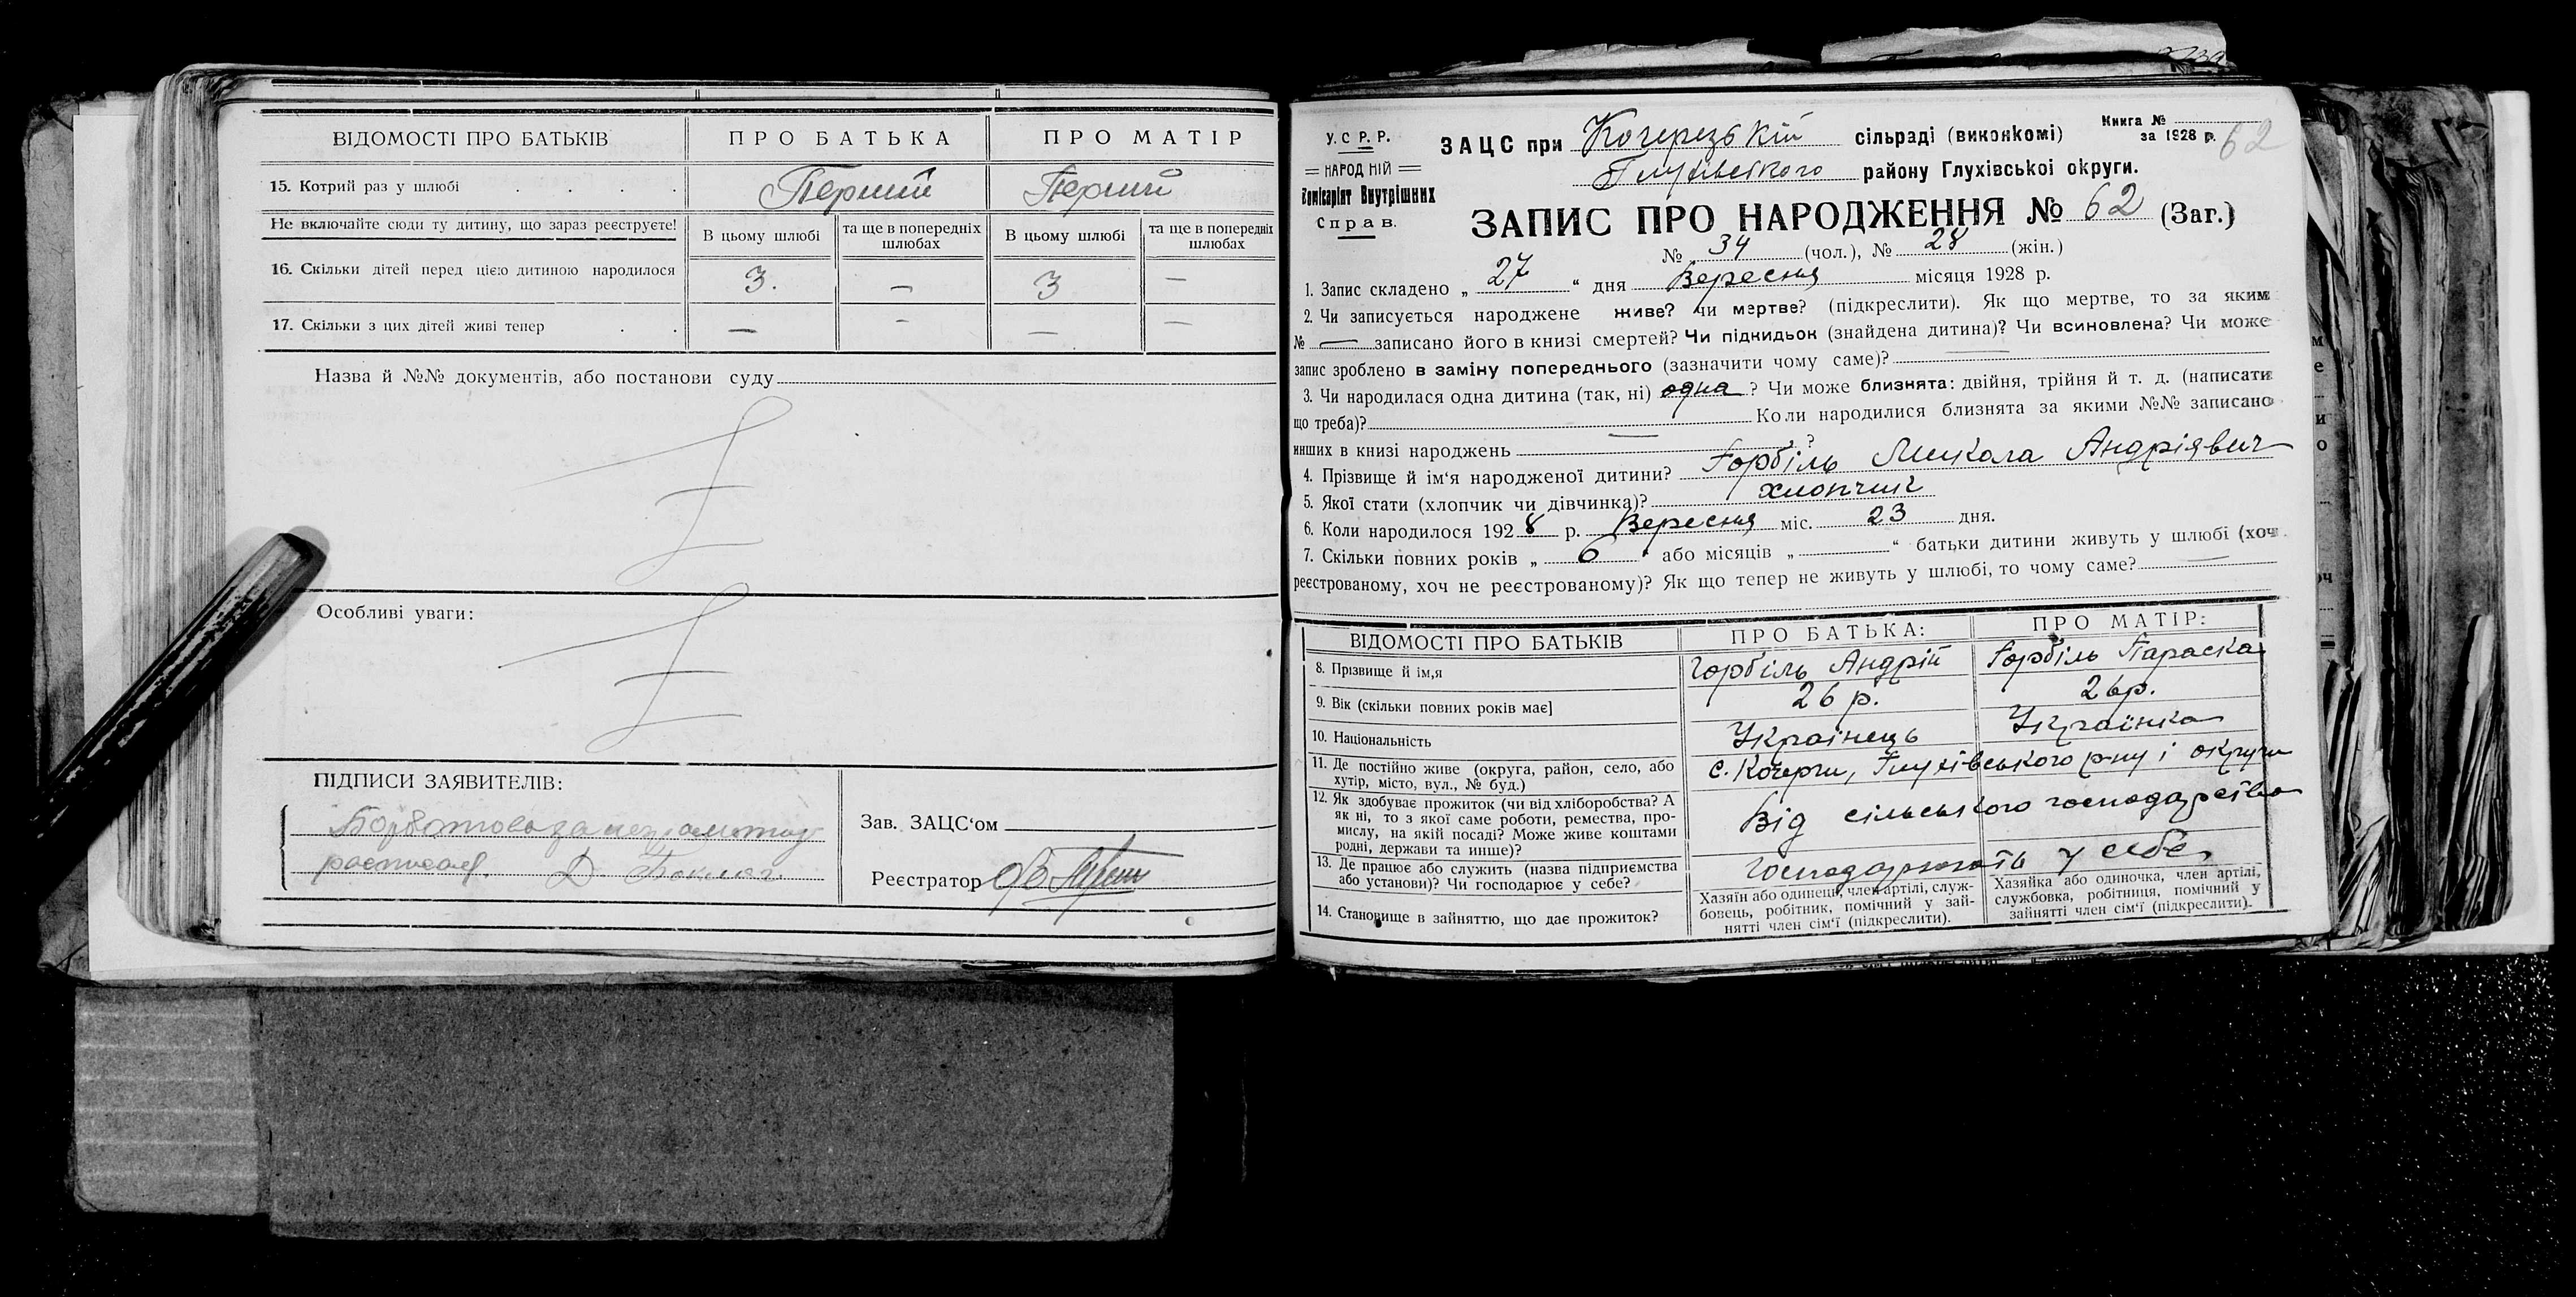 ВІДОМОСТІ ПРО БАТЬКІВ ПРО БАТЬКА ПРО МАТІР
15. Котрий раз у шлюбі . . . . Перший Перший
Не включайте сюди ту дитину, що зараз реєструєте! В цьому шлюбі та ще в попередніх шлюбах В цьому шлюбі та ще в попередніх шлюбах
16. Скільки дітей перед цією дитиною народилося 3. — 3 —
17. Скільки з цих дітей живі тепер . . — — — —
Назва й №№ документів, або постанови суду
Особливі уваги:
ПІДПИСИ ЗАЯВИТЕЛІВ:
Зав. ЗАЦС‘ом
Реєстратор
У. С. Р. Р.
НАРОДНІЙ
Комісаріят Внутрішних
Справ.
ЗАЦС при Кочерезькій сільраді (виконкомі)
Книга №
за 1928 р. 62
Глухівського району Глухівської округи.
ЗАПИС ПРО НАРОДЖЕННЯ № 62 (Заг.)
№ 34 (чол.), № 28 (жін.)
1. Запис складено „ 27 “ дня Вересня місяця 1928 р.
2. Чи записується народжене живе? чи мертве? (підкреслити). Як що мертве, то за яким
№ — записано його в книзі смертей? Чи підкидьок (знайдена дитина)? Чи всиновлена? Чи може
запис зроблено в заміну попереднього (зазначити чому саме)? —
3. Чи народилася одна дитина (так, ні) одна ? Чи може близнята: двійня, трійня й т. д. (написати
що треба)? — Коли народилися близнята за якими №№ записано
инших в книзі народжень ?
4. Прізвище й ім‘я народженої дитини? Горбіль Микола Андріявич
5. Якої стати (хлопчик чи дівчинка)? хлопчик
6. Коли народилося 1928 р. Вересня міс. 23 дня.
7. Скільки повних років „ 6 “ або місяців „ “ батьки дитини живуть у шлюбі (хоч
реєстрованому, хоч не реєстрованому)? Як що тепер не живуть у шлюбі, то чому саме? —
ВІДОМОСТІ ПРО БАТЬКІВ ПРО БАТЬКА: ПРО МАТІР:
8. Прізвище й ім,я Горбіль Андрій Горбіль Параска
9. Вік (скільки повних років має] 26 р. 26р.
10. Національність Українець Українка
11. Де постійно живе (округа, район, село, або
хутір, місто, вул., № буд.) с. Кочерги, Глухівського р-ну і округи
12. Як здобуває прожиток (чи від хліборобства? А
як ні, то з якої саме роботи, ремества, про-
мислу, на якій посаді? Може живе коштами
родні, держави та инше)? Від сільського господарства
13. Де працює або служить (назва підприємства
або установи)? Чи господарює у себе? Господарюють у себе
14. Становище в зайняттю, що дає прожиток?
Хазяїн або одинець, член артілі, служ-
бовець, робітник, помічний у зай-
нятті член сім‘ї (підкреслити).
Хазяйка або одиночка, член артілі,
службовка, робітниця, помічний у
зайнятті член сім‘ї (підкреслити).